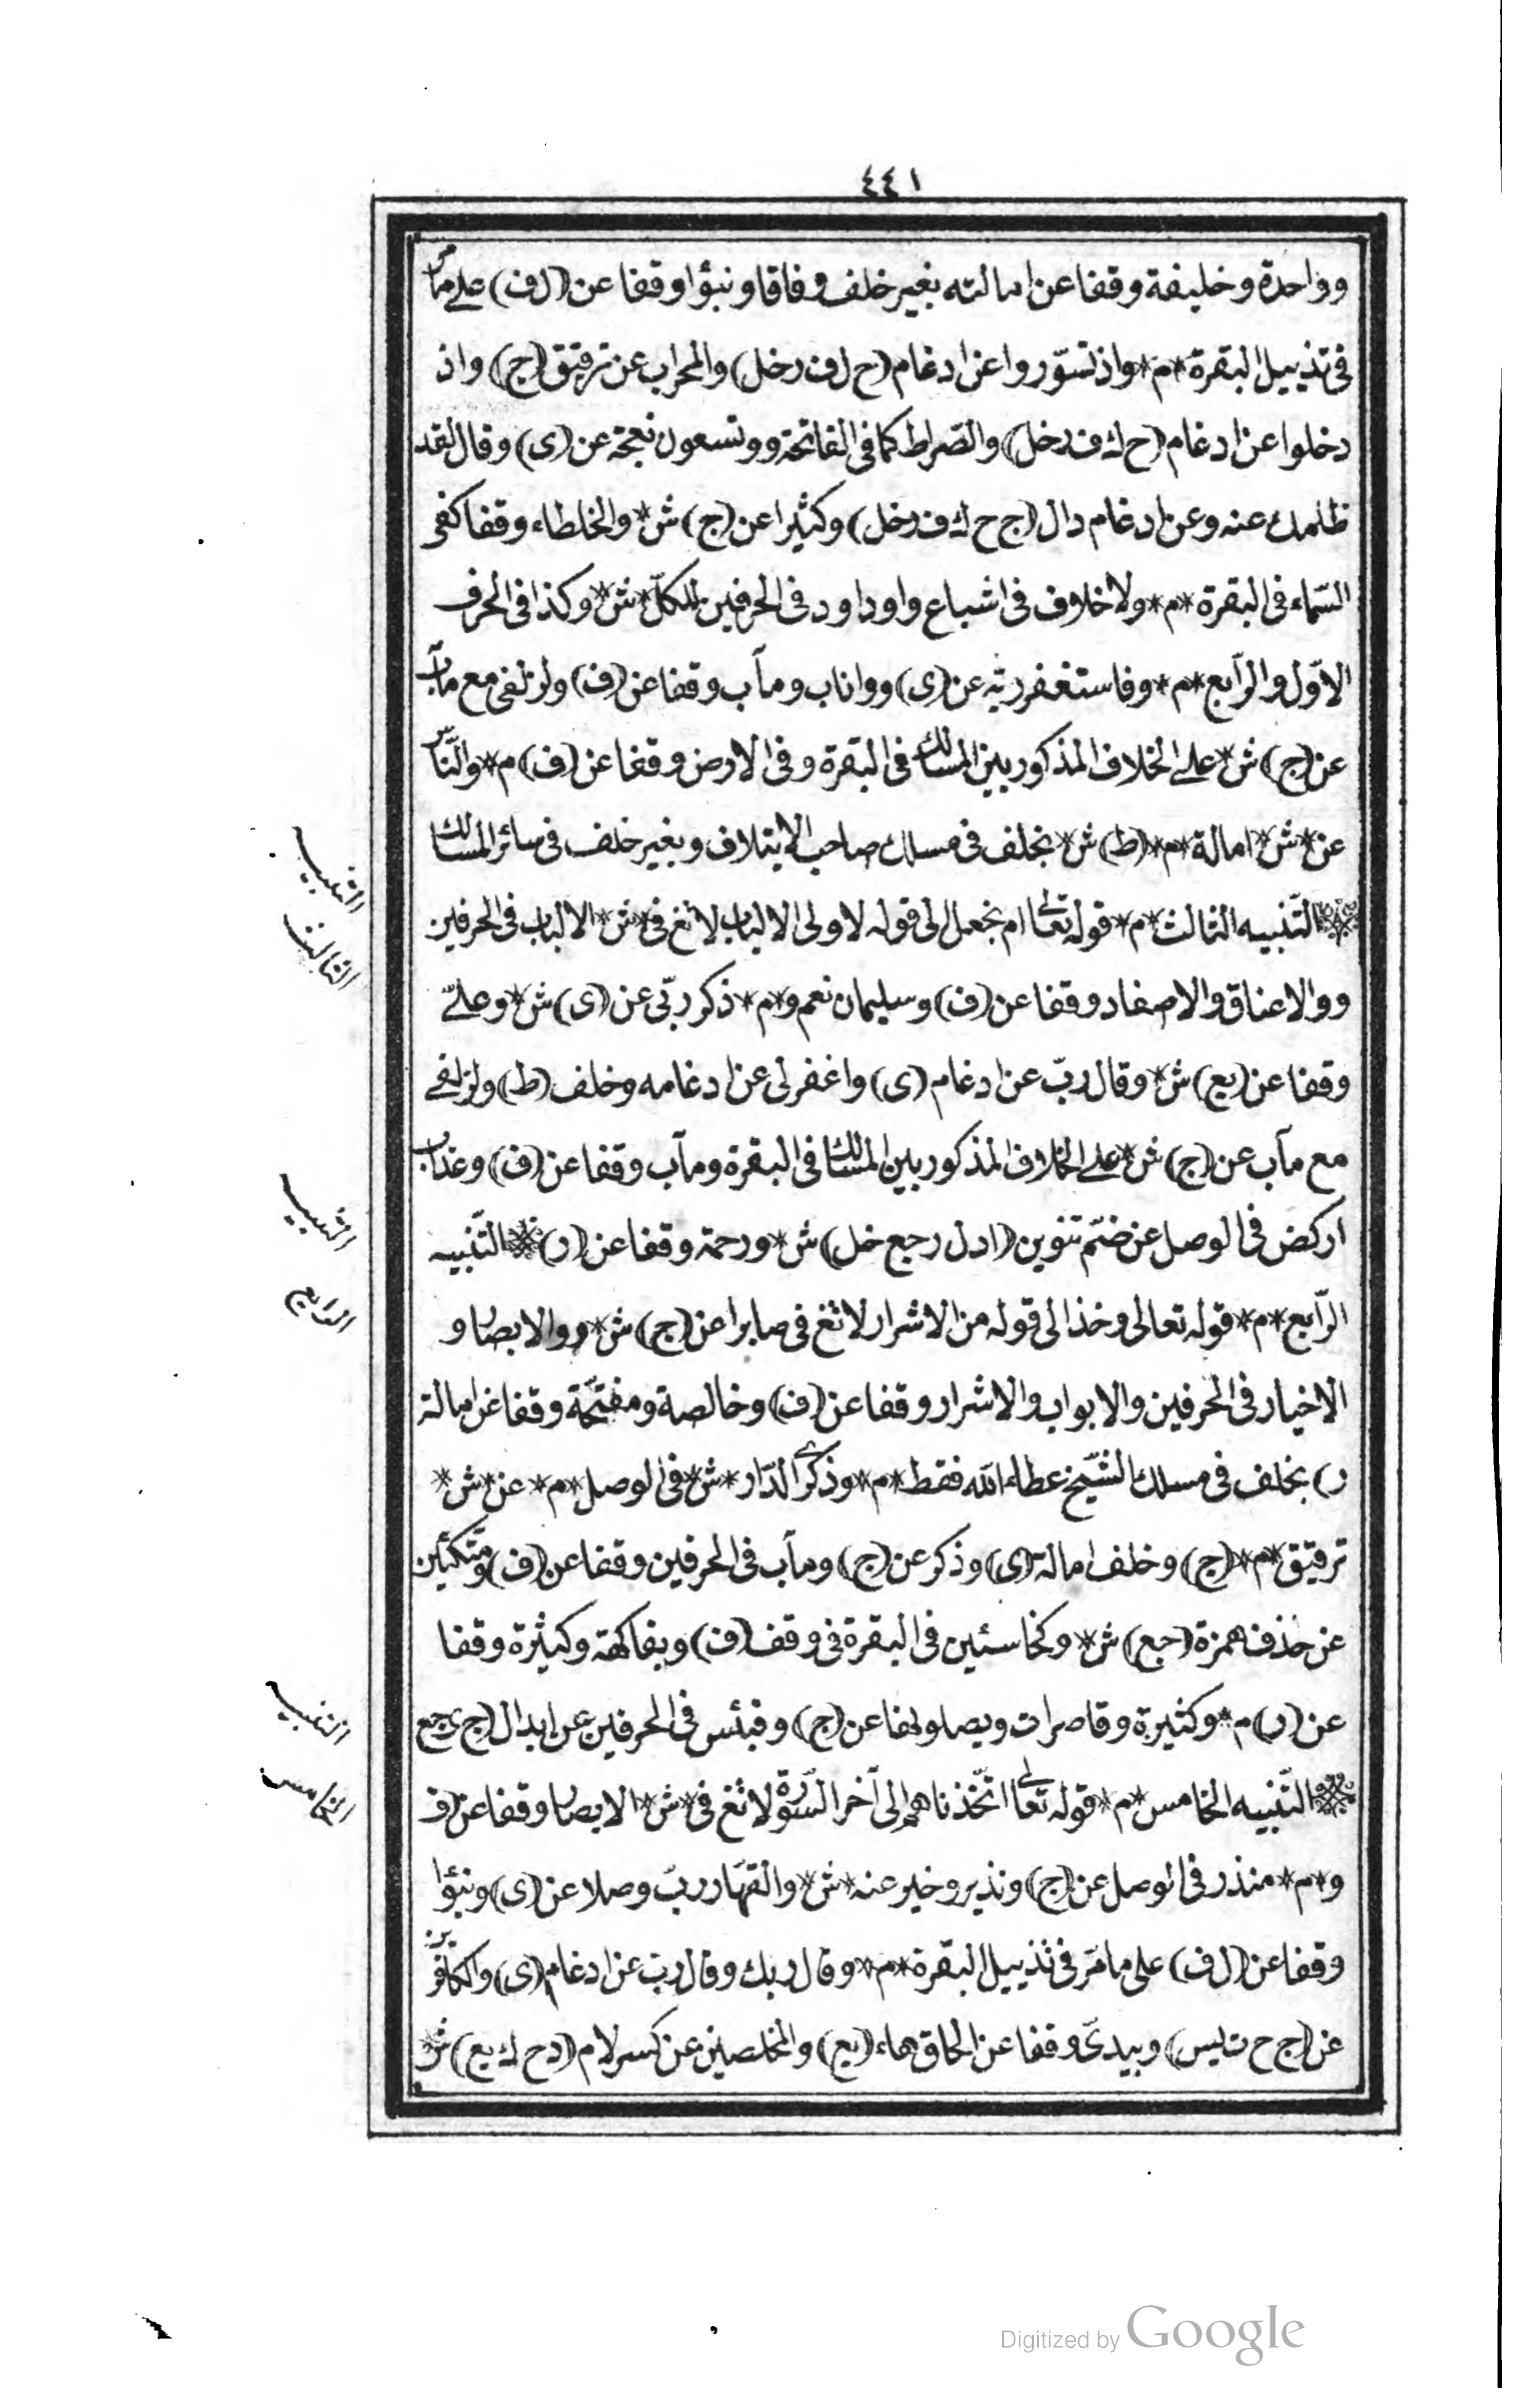 ٤٤١
وواحدة وخليفة وقفا عن امالته بغير خلف وفاقا ونبؤا وقفا عن (ل ف) على ما مرّ
فى تذييل البقرة *م* واذ تسوّروا عن ادغام (ح ل ف ر خل) والمحراب عن ترقيق (ج) واذ
دخلوا عن ادغام (ح ك ف ر خل) والصّراط كما فى الفاتحة ووتسعون نعجة عن (ى) وقال لقد
ظلمك عنه وعن ادغام دال (ج ح ك ف ر خل) وكثيرا عن (ج) ش* والخلطاء وقفا كفى
السّماء فى البقرة *م* ولا خلاف فى اشباع واو داود فى الحرفين للكلّ *ش* وكذا فى الحرف
الاوّل والرّابع *م* وفاستغفر ربّه عن (ى) وواناب ومآب وقفا عن (ف) ولزلفى مع مآب
عن (ج) ش* على الخلاف المذكور بين المسالك فى البقرة وفى الارض وقفا عن (ف) م* والنّار
عن *ش* امالة *م* (ط) ش* بخلف فى مسلك صاحب الايتلاف وبغير خلف فى سائر المسالك
التّنبيه الثالث *م* قوله تعالى ام نجعل الى قوله لاولى الالباب لا ثغ فى *ش* الالباب فى الحرفين
ووالاعناق والاصفاد وقفا عن (ف) وسليمان نعم و*م* ذكر ربّى عن (ى) ش* وعلىّ
وقفا عن (يع) ش* وقال ربّ عن ادغام (ى) واغفر لى عن ادغامه وخلف (ط) ولزلفى
مع مآب عن (ج) ش* على الخلاف المذكور بين المسالك فى البقرة ومآب وقفا عن (ف) وعذاب
اركض فى الوصل عن ضمّ تنوين (ا د ل ر جع خل) ش* ورحمة وقفا عن (ر) التّنبيه
الرّابع *م* قوله تعالى وخذ الى قوله من الاشرار لا ثغ فى صابرا عن (ج) ش* ووالابصار و
الاخيار فى الحرفين والابواب والاشرار وقفا عن (ف) وخالصة ومفتّحة وقفا عن امالة
ر) بخلف فى مسلك الشّيخ عطاء الله فقط *م* وذكرى الدّار *ش* فى الوصل *م* عن *ش*
ترقيق *م* (ج) وخلف امالة (ى) وذكر عن (ج) ومآب فى الحرفين وقفا عن (ف) ومتّكئين
عن حذف همزة (جع) ش* وكخاسئين فى البقرة فى وقف (ف) وبفاكهة وكثيرة وقفا
عن (ر) م* وكثيرة وقاصرات ويصلونها عن (ج) وفبئس فى الحرفين عن ابدال (ج ى جع
التّنبيه الخامس *م* قوله تعالى اتّخذناهم الى آخر السّورة لا ثغ فى *ش* الابصار وقفا عن (ف
و*م* منذر فى الوصل عن (ج) ونذير وخير عنه *ش* والقهّار ربّ وصلا عن (ى) ونبؤا
وقفا عن (ل ف) على ما مرّ فى تذييل البقرة *م* وقال ربك وقال ربّ عن ادغام (ى) والكافرين
عن (ج ح ت ليس) وبيدىّ وقفا عن الحاق هاء (يع) والمخلصين عن كسر لام (د ح ك يع) ش*
التنبيه
الثالث
التنبيه
الرابع
التنبيه
الخامس
Digitized by Google